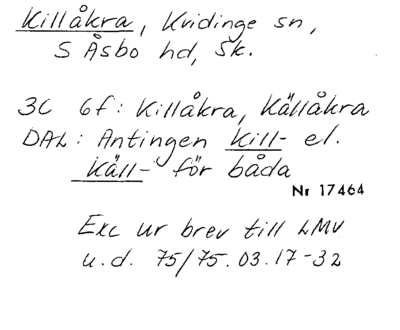 Killåkra, Kvidinge sn,
S Åsbo hd, Sk.
3C 6f: Killåkra, Källåkra
DAL: Antingen Kill- el.
Käll- för båda
Nr 17464
Exc ur brev till LMV
u.d. 75/75.03.17-32